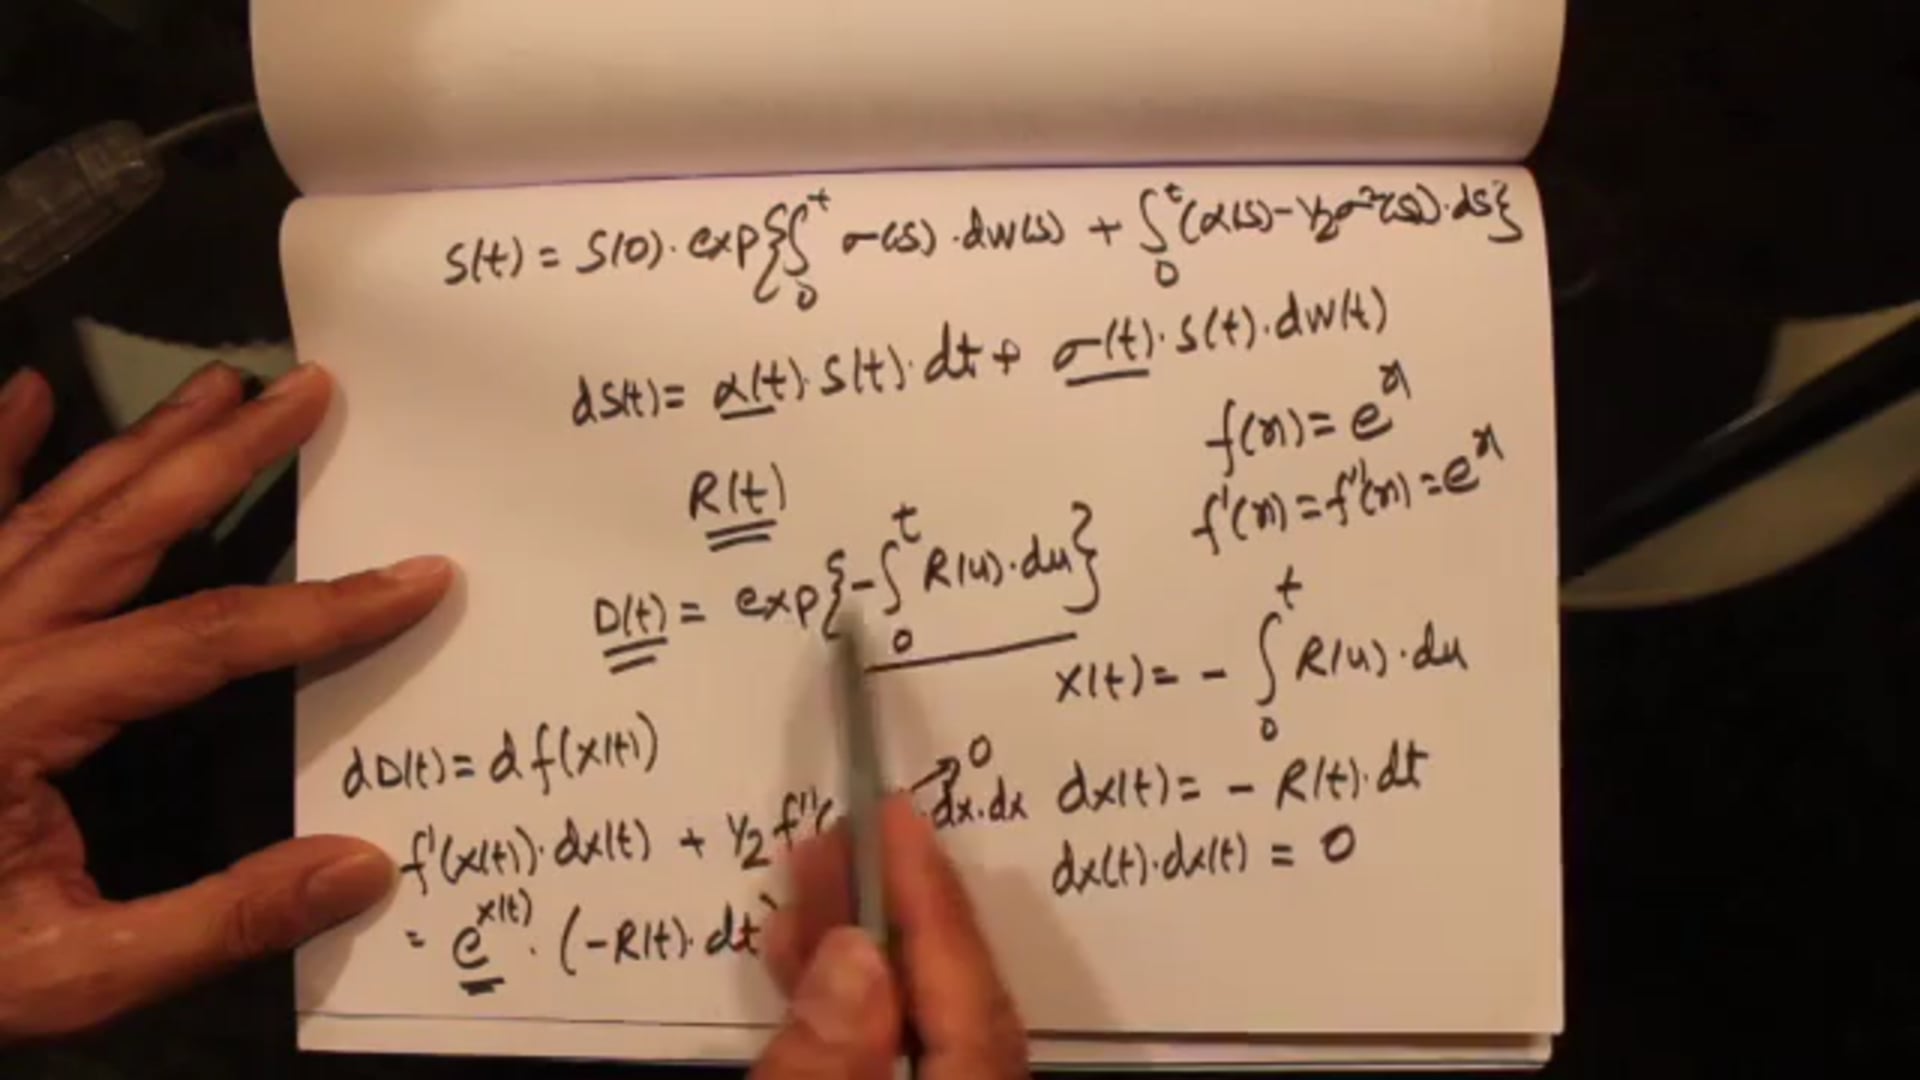 S(t) = S(0) · exp{∫₀ᵗ σ(s) · dW(s) + ∫₀ᵗ (α(s) - 1/2 σ²(s)) · ds}
dS(t) = α(t) · S(t) · dt + σ(t) · S(t) · dW(t)
f(x) = eˣ
R(t)
f'(x) = f''(x) = eˣ
D(t) = exp{-∫₀ᵗ R(u) · du}
X(t) = - ∫₀ᵗ R(u) · du
dD(t) = d f(X(t))
0
dx(t) = - R(t) · dt
f'(x(t)) · dx(t) + 1/2 f''( dx · dx
dx(t) · dx(t) = 0
= e^x(t) · (-R(t) · dt)